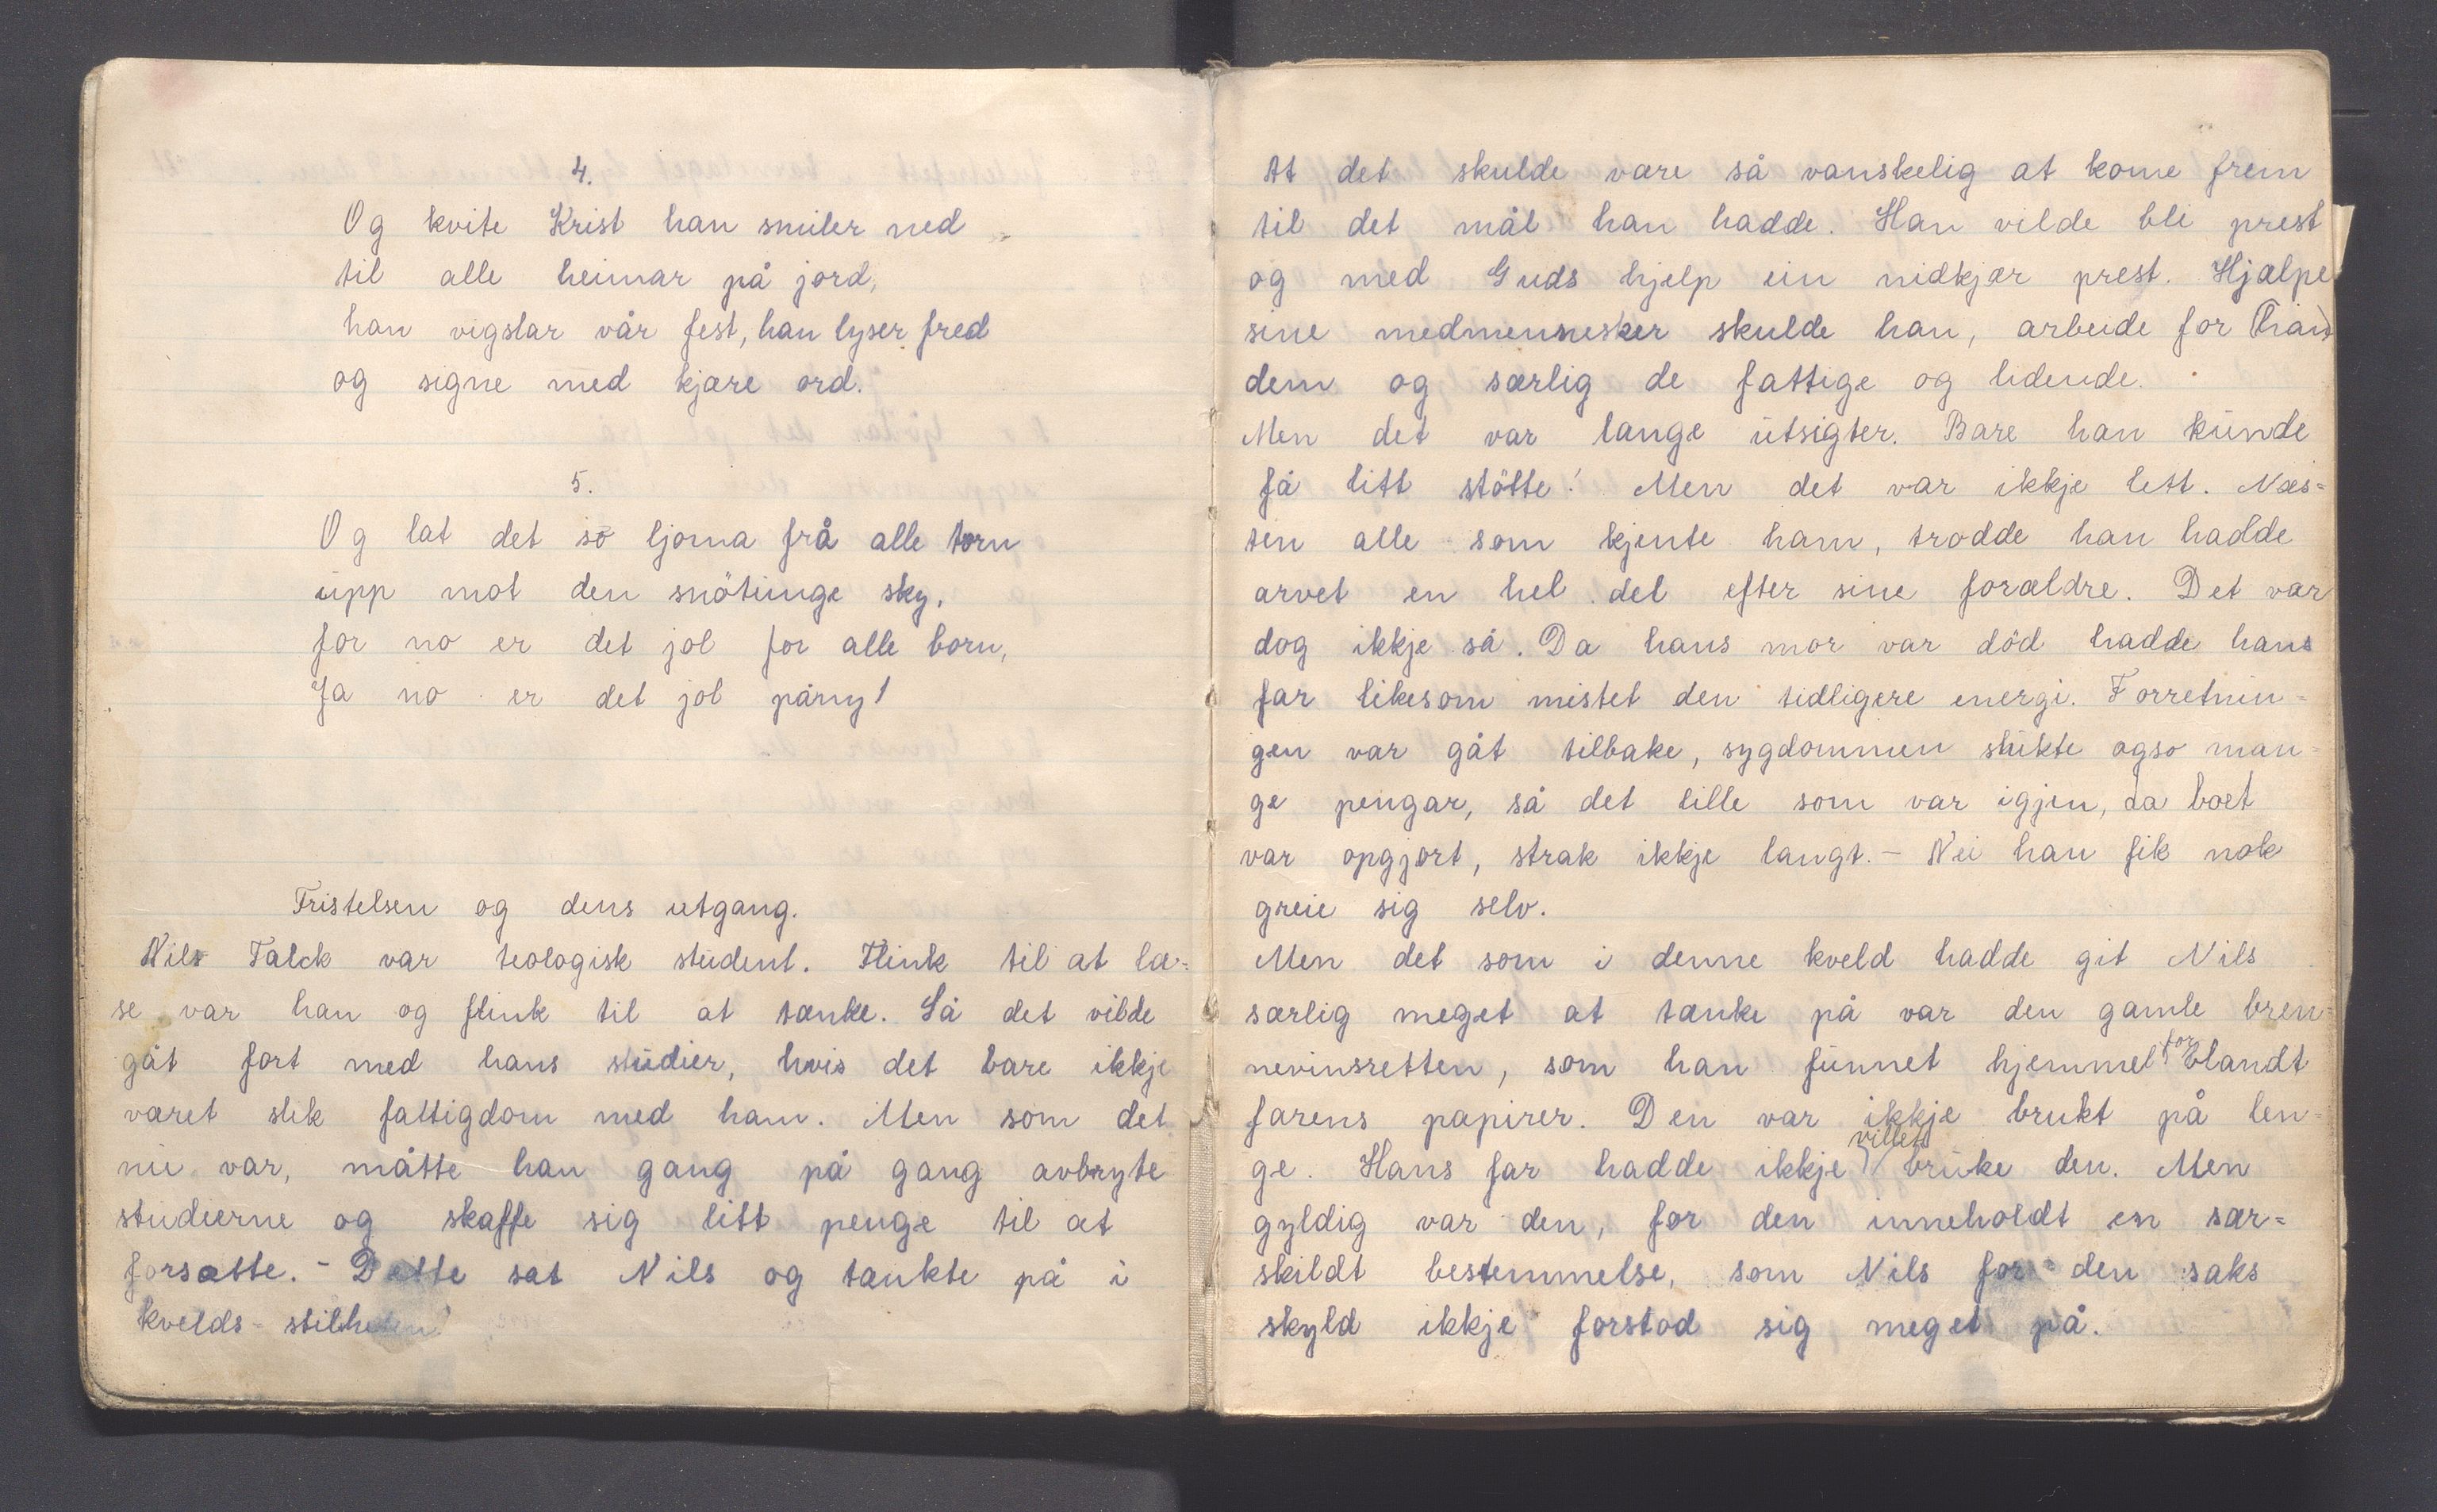 4.
Og kvite Krist han smiler ned
til alle heimar på jord,
han vigslar vår fest, han lyser fred
og signe med kjære ord.
5.
Og lat det so ljoma frå alle torn
upp mot den snötunge sky,
for no er det jol for alle born,
Ja no er det jol påny!
Fristelsen og dens utgang.
Nils Falck var teologisk student. Flink til at læ=
se var han og flink til at tænke. Så det vilde
gåt fort med hans studier, hvis det bare ikkje
været slik fattigdom med ham. Men som det
nu var, måtte han gang på gang avbryte
studierne og skaffe sig litt penge til at
forsætte. - Dette sat Nils og tænkte på i
kvelds-stilheten
At det skulde være så vanskelig at kome frem
til det mål han hadde. Han vilde bli prest
og med Guds hjelp ein nidkjær prest. Hjælpe
sine medmennesker skulde han, arbeide for
dem og særlig de fattige og lidende.
Men det var lange utsigter. Bare han kunde
få litt stötte! Men det var ikkje lett. Næs=
ten alle som kjente ham, trodde han hadde
arvet en hel del efter sine forældre. Det var
dog ikkje så. Da hans mor var död hadde hans
far likesom mistet den tidligere energi. Forretnin=
gen var gåt tilbake, sygdommen slukte ogso man=
ge pengar, så det lille som var igjen, da boet
var opgjort, strak ikkje langt. - Nei han fik nok
greie sig selv.
Men det som i denne kveld hadde git Nils
særlig meget at tænke på var den gamle bren=
nevinsretten, som han funnet hjemmel for blandt
farens papirer. Den var ikkje brukt på len=
ge. Hans far hadde ikkje villet bruke den. Men
gyldig var den, for den inneholdt en sær=
skildt bestemmelse, som Nils for den saks
skyld ikkje forstod sig meget på.